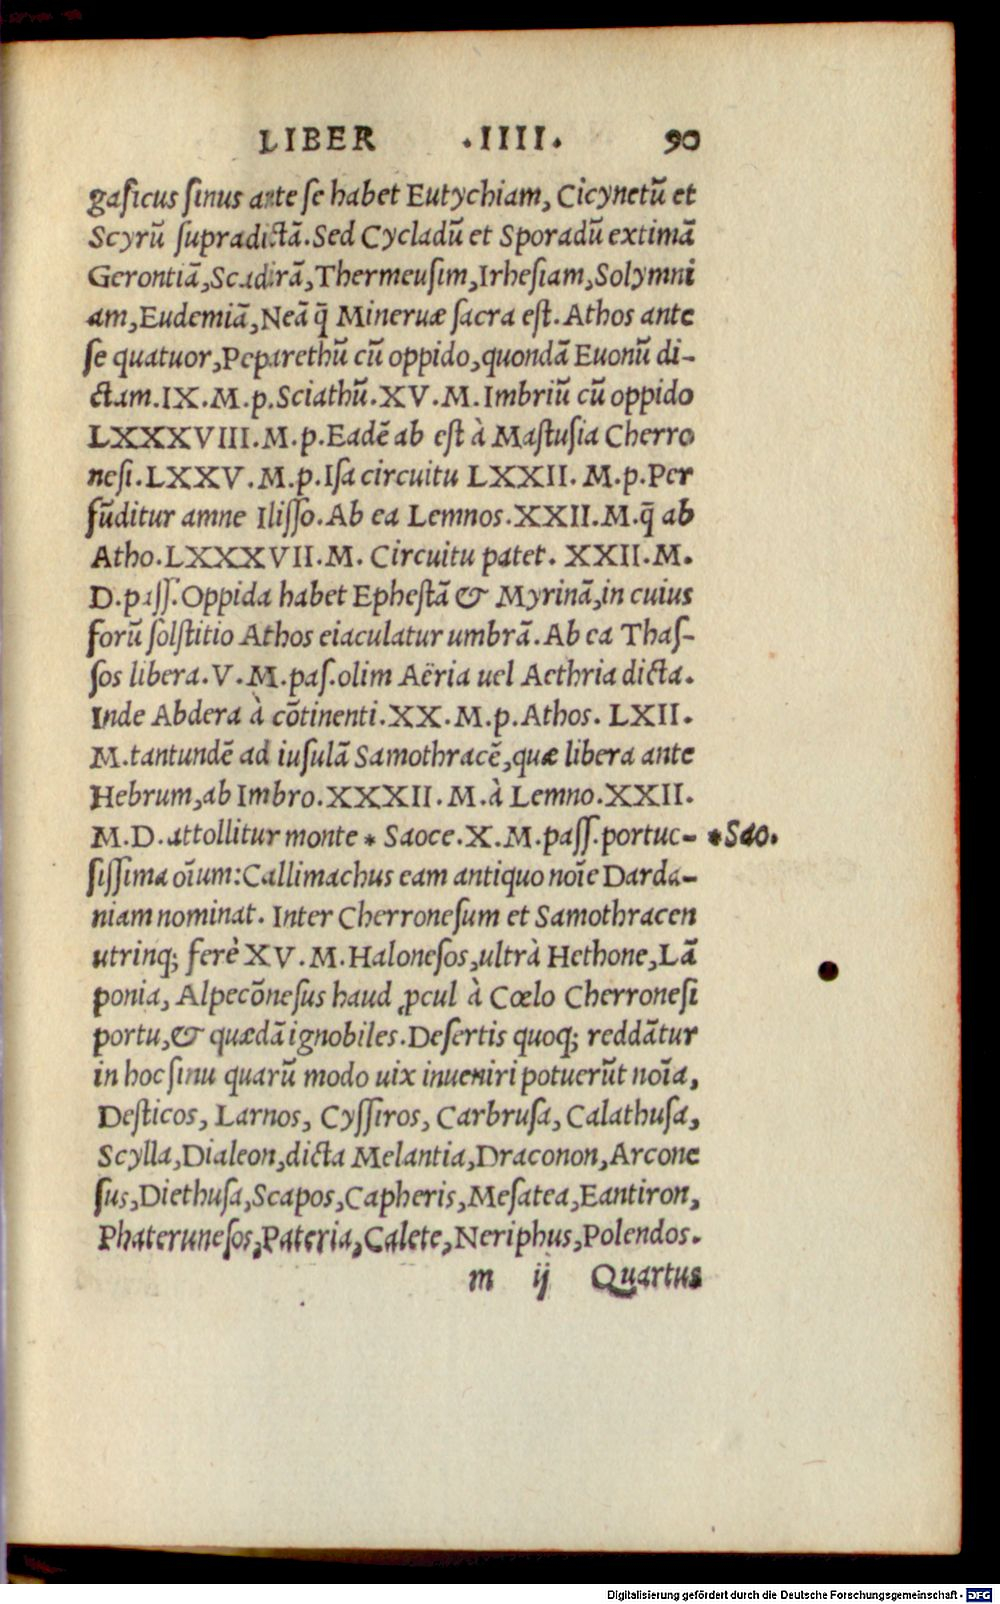 LIBER .IIII. 90
gaſicus ſinus ante ſe habet Eutychiam, Cicynetū et
Scyrū ſupradictā. Sed Cycladū et Sporadū extimā
Gerontiā, Scadirā, Thermeuſim, Irheſiam, Solymni
am, Eudemiā, Neā q̄ Mineruæ ſacra eſt. Athos ante
ſe quatuor, Peparethū cū oppido, quondā Euonū di-
ctam. IX. M. p. Sciathū. XV. M. Imbriū cū oppido
LXXXVIII. M. p. Eadē ab eſt à Maſtuſia Cherro
neſi. LXXV. M. p. Iſa circuitu LXXII. M. p. Per
fūditur amne Iliſſo. Ab ea Lemnos. XXII. M. q̄ ab
Atho. LXXXVII. M. Circuitu patet. XXII. M.
D. paſſ. Oppida habet Epheſtā & Myrinā, in cuius
forū ſolſtitio Athos eiaculatur umbrā. Ab ea Thaſ-
ſos libera. V. M. paſ. olim Aëria uel Aethria dicta.
Inde Abdera à cōtinenti. XX. M. p. Athos. LXII.
M. tantundē ad iuſulā Samothracē, quæ libera ante
Hebrum, ab Imbro. XXXII. M. à Lemno. XXII.
M. D. attollitur monte * Saoce. X. M. paſſ. portuc- *Sao.
ſiſſima oīum: Callimachus eam antiquo noīe Darda-
niam nominat. Inter Cherroneſum et Samothracen
utrinq; ferè XV. M. Haloneſos, ultrà Hethone, Lā
ponia, Alpecōneſus haud ꝓcul à Cœlo Cherroneſi
portu, & quædā ignobiles. Deſertis quoq; reddātur
in hoc ſinu quarū modo uix inueniri potuerūt noīa,
Deſticos, Larnos, Cyſſiros, Carbruſa, Calathuſa,
Scylla, Dialeon, dicta Melantia, Draconon, Arcone
ſus, Diethuſa, Scapos, Capheris, Meſatea, Eantiron,
Phateruneſos, Pateria, Calete, Neriphus, Polendos.
m ij Quartus
Digitalisierung gefördert durch die Deutsche Forschungsgemeinschaft - DFG